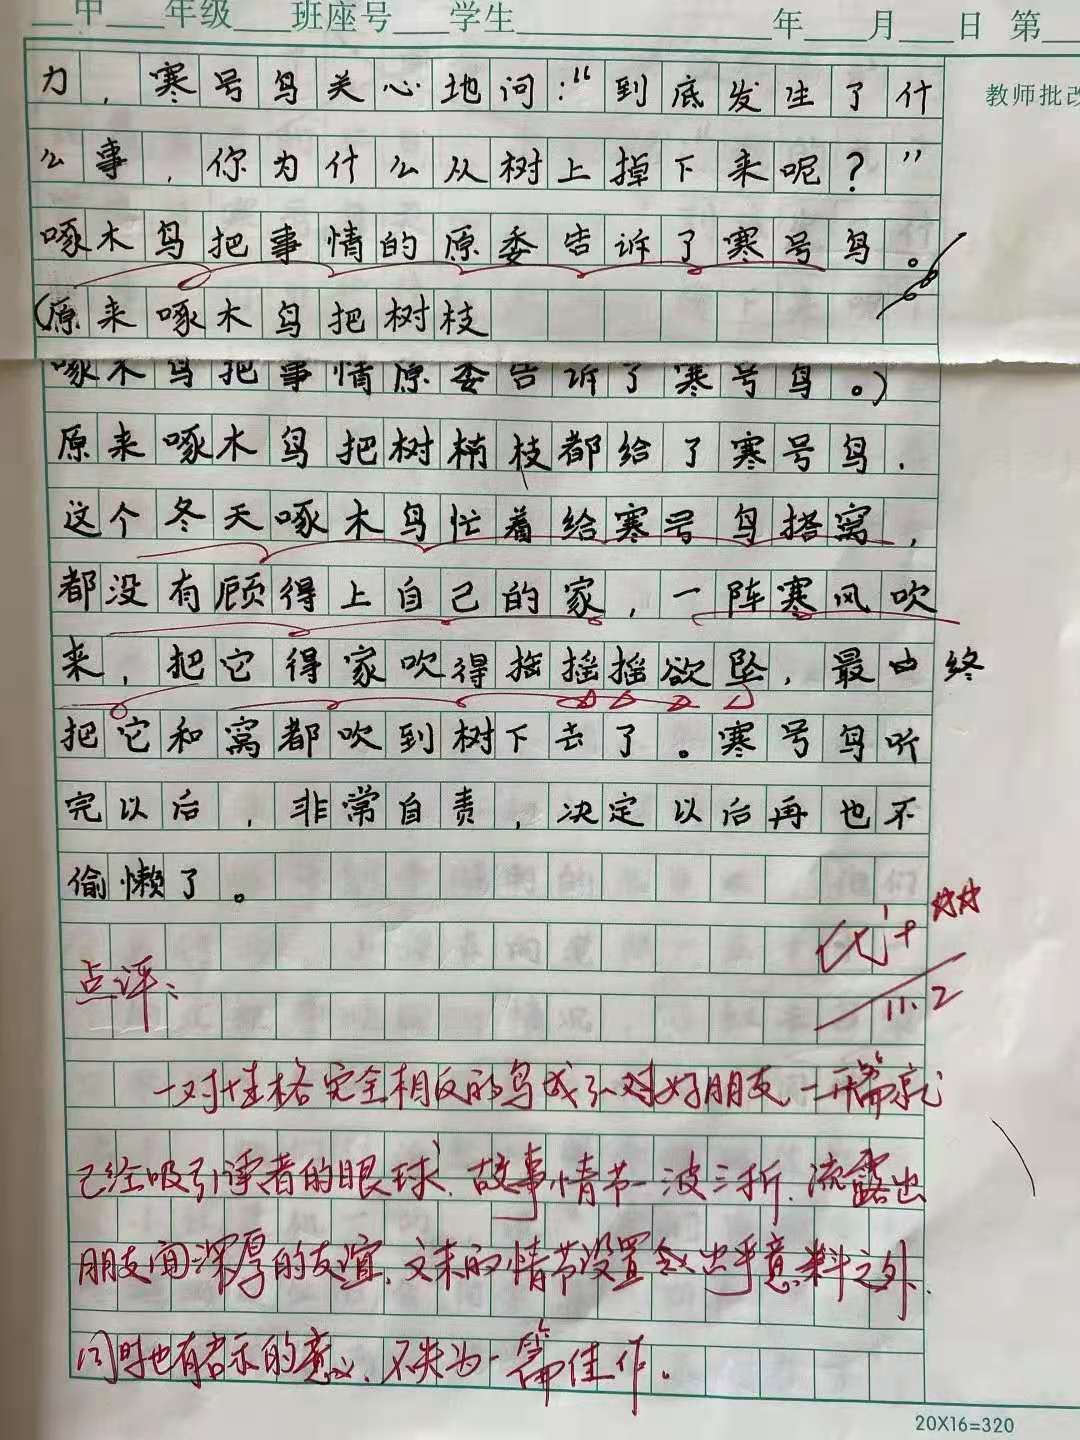 中 年级 班座号 学生 年 月 日 第
教师批改
力，寒号鸟关心地问：“到底发生了什
么事，你为什么从树上掉下来呢？”
啄木鸟把事情的原委告诉了寒号鸟。
(原来啄木鸟把树枝
啄木鸟把事情原委告诉了寒号鸟。)
原来啄木鸟把树楠枝都给了寒号鸟.
这个冬天啄木鸟忙着给寒号鸟搭窝，
都没有顾得上自己的家，一阵寒风吹
来，把它得家吹得摇摇摇欲坠，最由终
把它和窝都吹到树下去了。寒号鸟听
完以后，非常自责，决定以后再也不
偷懒了。
优+
11.2
点评：
一对性格完全相反的鸟成了一对好朋友 一开篇就
已经吸引读者的眼球.故事情节一波三折.流露出
朋友间深厚的友谊.文末的情节设置令人出乎意料之外.
同时也有启示的意义.不失为一篇佳作.
20X16=320